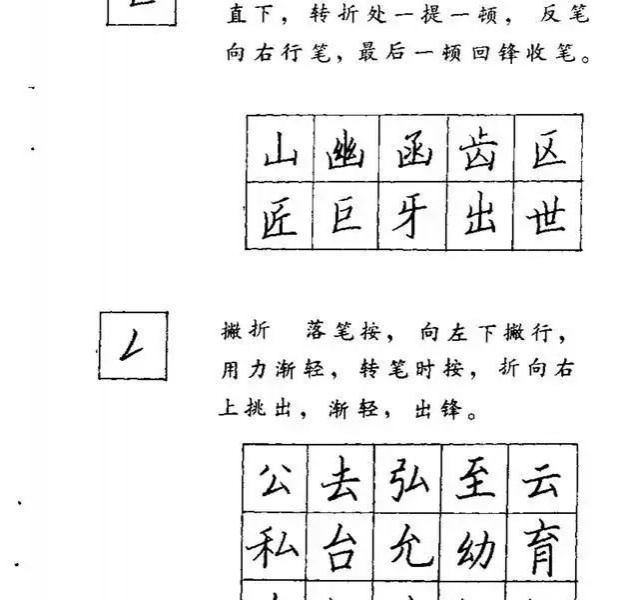 直下，转折处一提一顿，反笔
向右行笔，最后一顿回锋收笔。
山幽函齿区
匠巨牙出世
撇折 落笔按，向左下撇行，
用力渐轻，转笔时按，折向右
上挑出，渐轻，出锋。
公去弘至云
私台允幼育